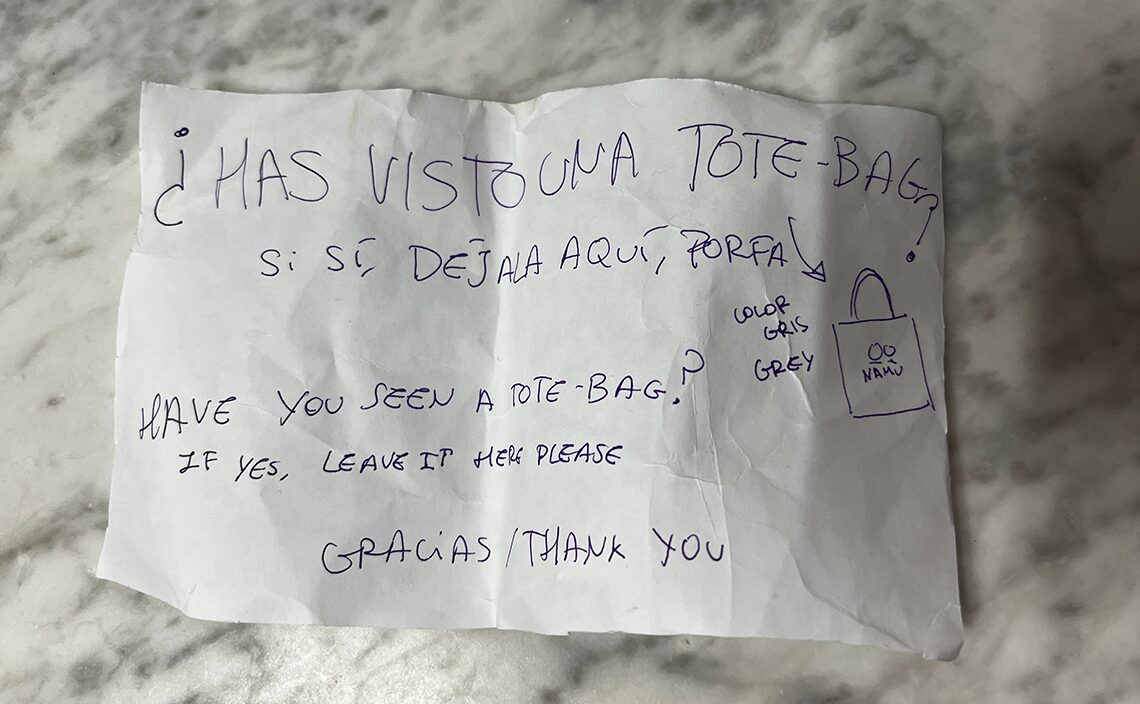 ¿HAS VISTO UNA TOTE-BAG?
Si SÍ, DÉJALA AQUÍ, PORFA
COLOR
GRIS
GREY
NAMU
HAVE YOU SEEN A TOTE-BAG?
IF YES, LEAVE IT HERE PLEASE
GRACiAS/THANK YOU